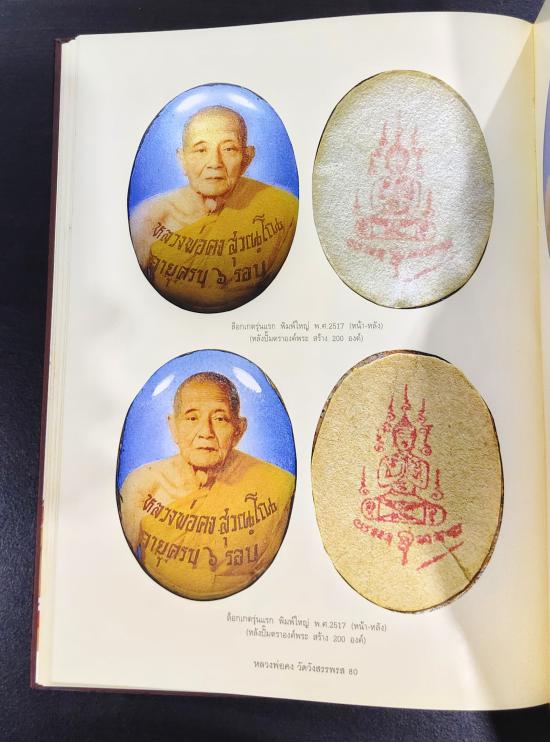 หลวงพ่อคง สุวณฺโณ
อายุครบ ๖ รอบ
ล็อกเกตรุ่นแรก พิมพ์ใหญ่ พ.ศ.2517 (หน้า-หลัง)
(หลังปั๊มตราองค์พระ สร้าง 200 องค์)
หลวงพ่อคง สุวณฺโณ
อายุครบ ๖ รอบ
ล็อกเกตรุ่นแรก พิมพ์ใหญ่ พ.ศ.2517 (หน้า-หลัง)
(หลังปั๊มตราองค์พระ สร้าง 200 องค์)
หลวงพ่อคง วัดวังสรรพรส 80